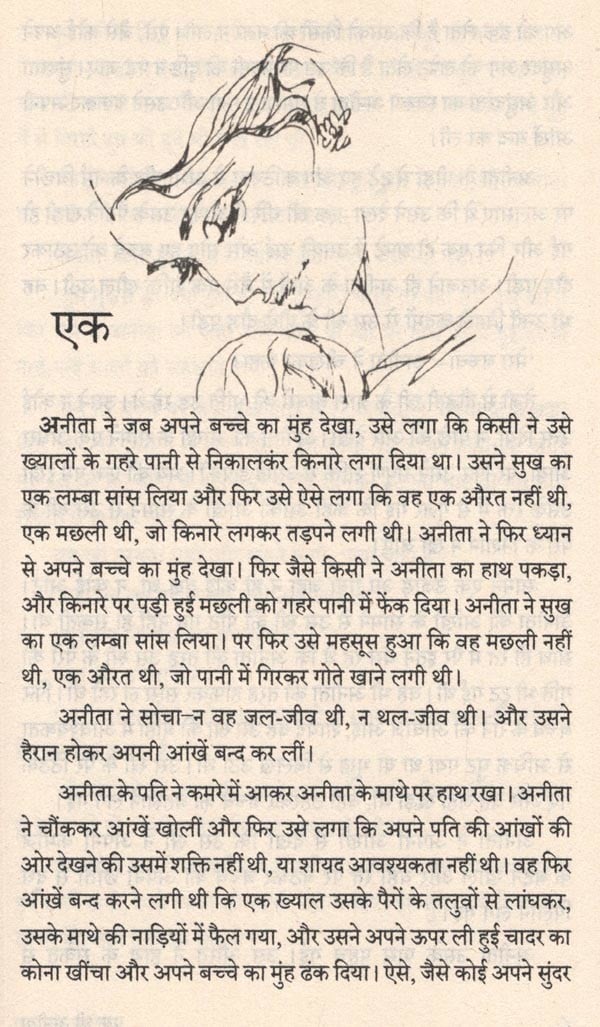 एक
अनीता ने जब अपने बच्चे का मुंह देखा, उसे लगा कि किसी ने उसे
ख्यालों के गहरे पानी से निकालकंर किनारे लगा दिया था। उसने सुख का
एक लम्बा सांस लिया और फिर उसे ऐसे लगा कि वह एक औरत नहीं थी,
एक मछली थी, जो किनारे लगकर तड़पने लगी थी। अनीता ने फिर ध्यान
से अपने बच्चे का मुंह देखा। फिर जैसे किसी ने अनीता का हाथ पकड़ा,
और किनारे पर पड़ी हुई मछली को गहरे पानी में फेंक दिया। अनीता ने सुख
का एक लम्बा सांस लिया। पर फिर उसे महसूस हुआ कि वह मछली नहीं
थी, एक औरत थी, जो पानी में गिरकर गोते खाने लगी थी।
अनीता ने सोचा–न वह जल-जीव थी, न थल-जीव थी। और उसने
हैरान होकर अपनी आंखें बन्द कर लीं।
अनीता के पति ने कमरे में आकर अनीता के माथे पर हाथ रखा। अनीता
ने चौंककर आंखें खोलीं और फिर उसे लगा कि अपने पति की आंखों की
ओर देखने की उसमें शक्ति नहीं थी, या शायद आवश्यकता नहीं थी। वह फिर
आंखें बन्द करने लगी थी कि एक ख्याल उसके पैरों के तलुवों से लांघकर,
उसके माथे की नाड़ियों में फैल गया, और उसने अपने ऊपर ली हुई चादर का
कोना खींचा और अपने बच्चे का मुंह ढंक दिया। ऐसे, जैसे कोई अपने सुंदर